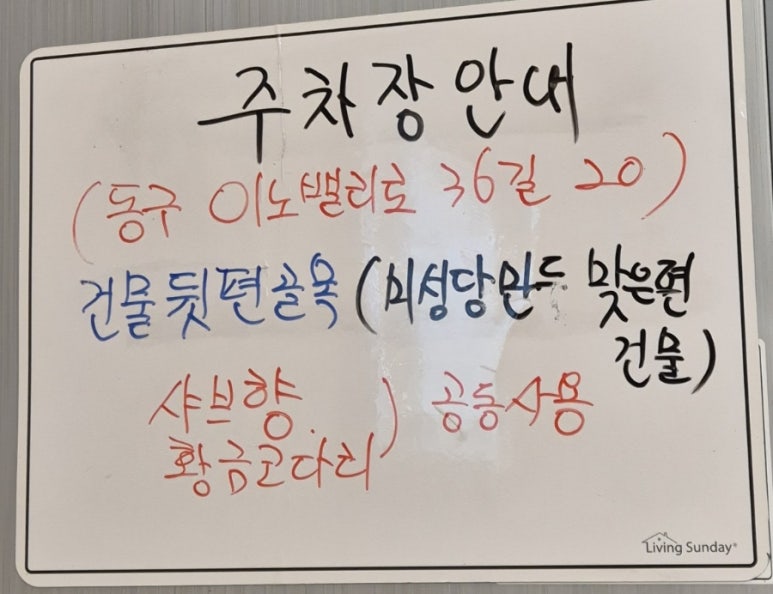 주차장안내
(동구 이노밸리로 36길 20)
건물뒷편골목 (미성당만두 맞은편
건물)
샤브향.
황금코다리
) 공동사용
Living Sunday